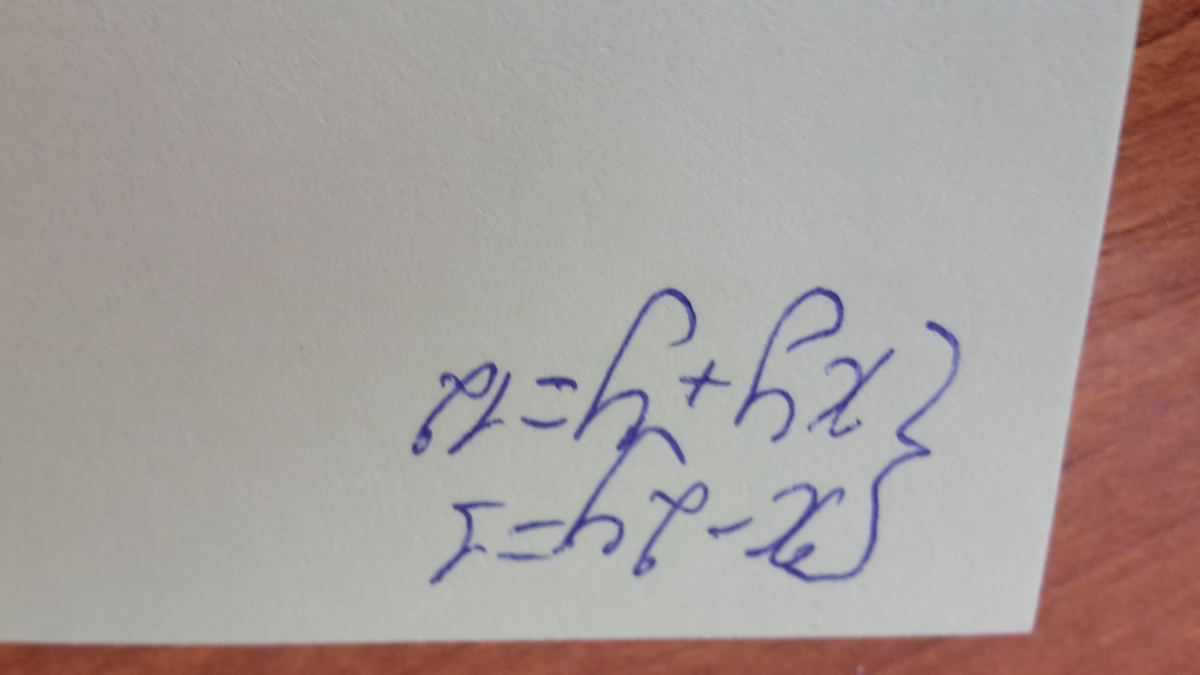 x-2y=1
xy+y=12